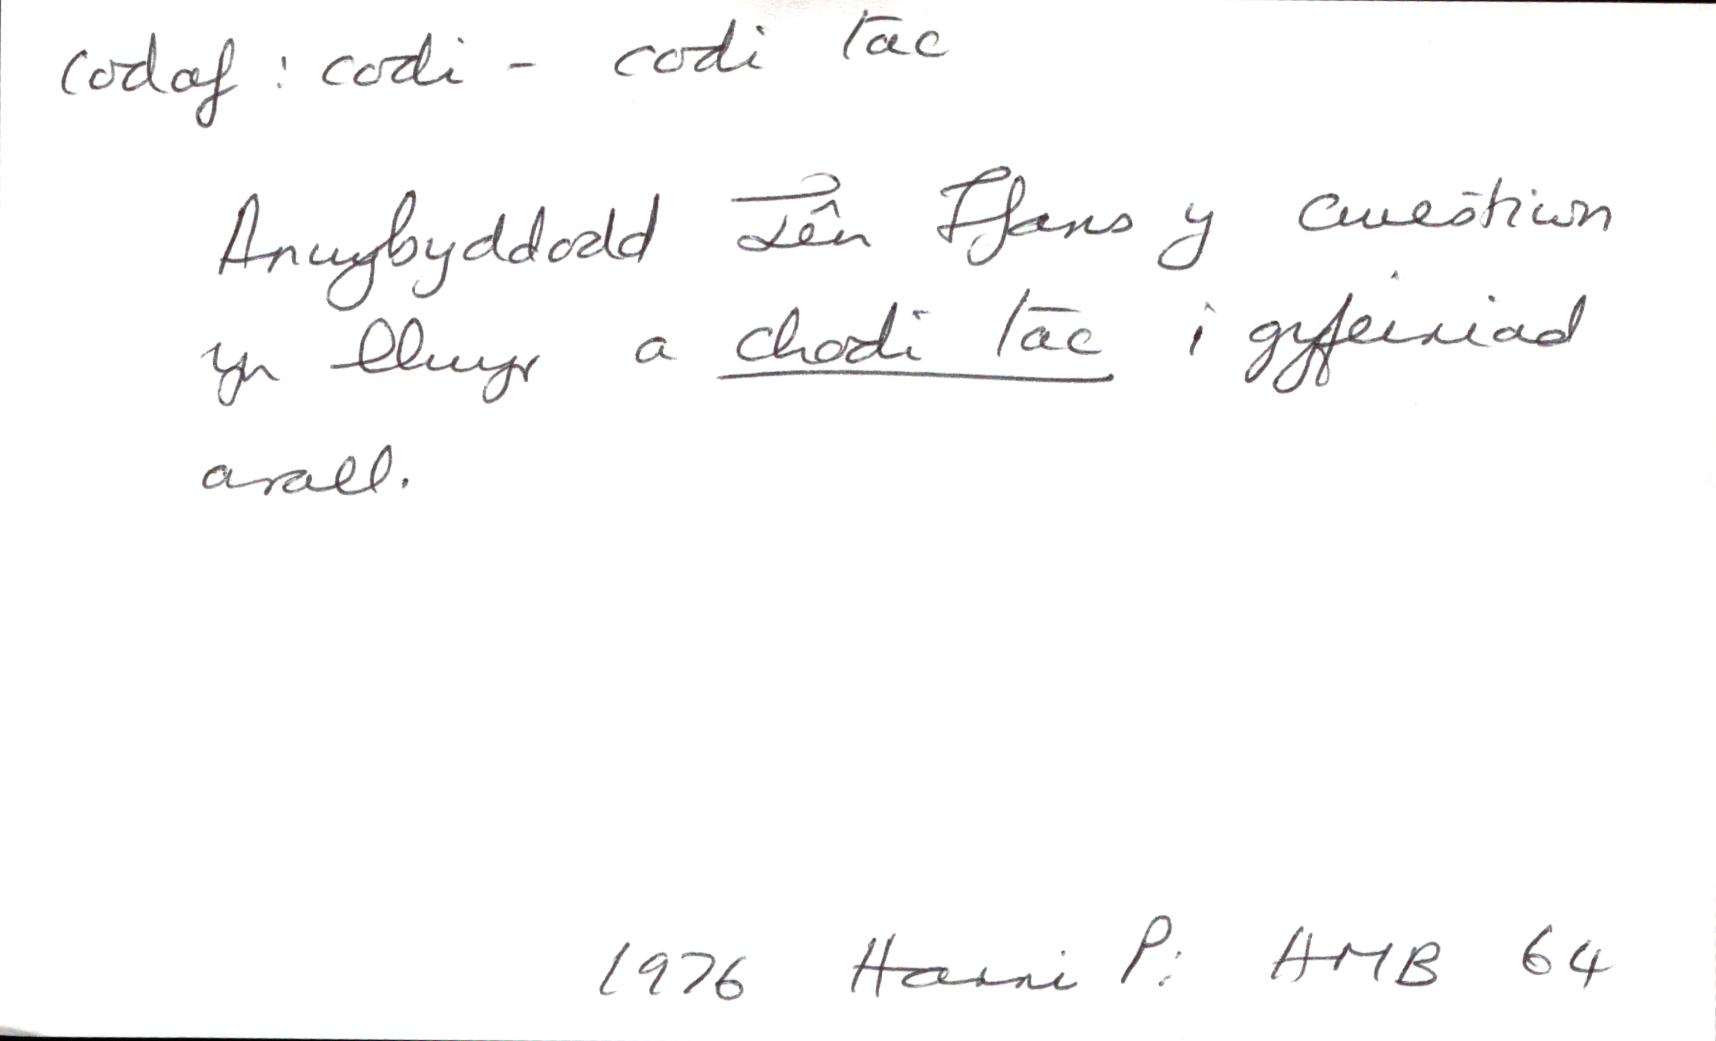 codaf : codi - codi tac
Anwybyddodd Jên Ifans y cwestiwn
yn llwyr a chodi tac i gyfeiriad
arall.
1976 Harri P: HMB 64